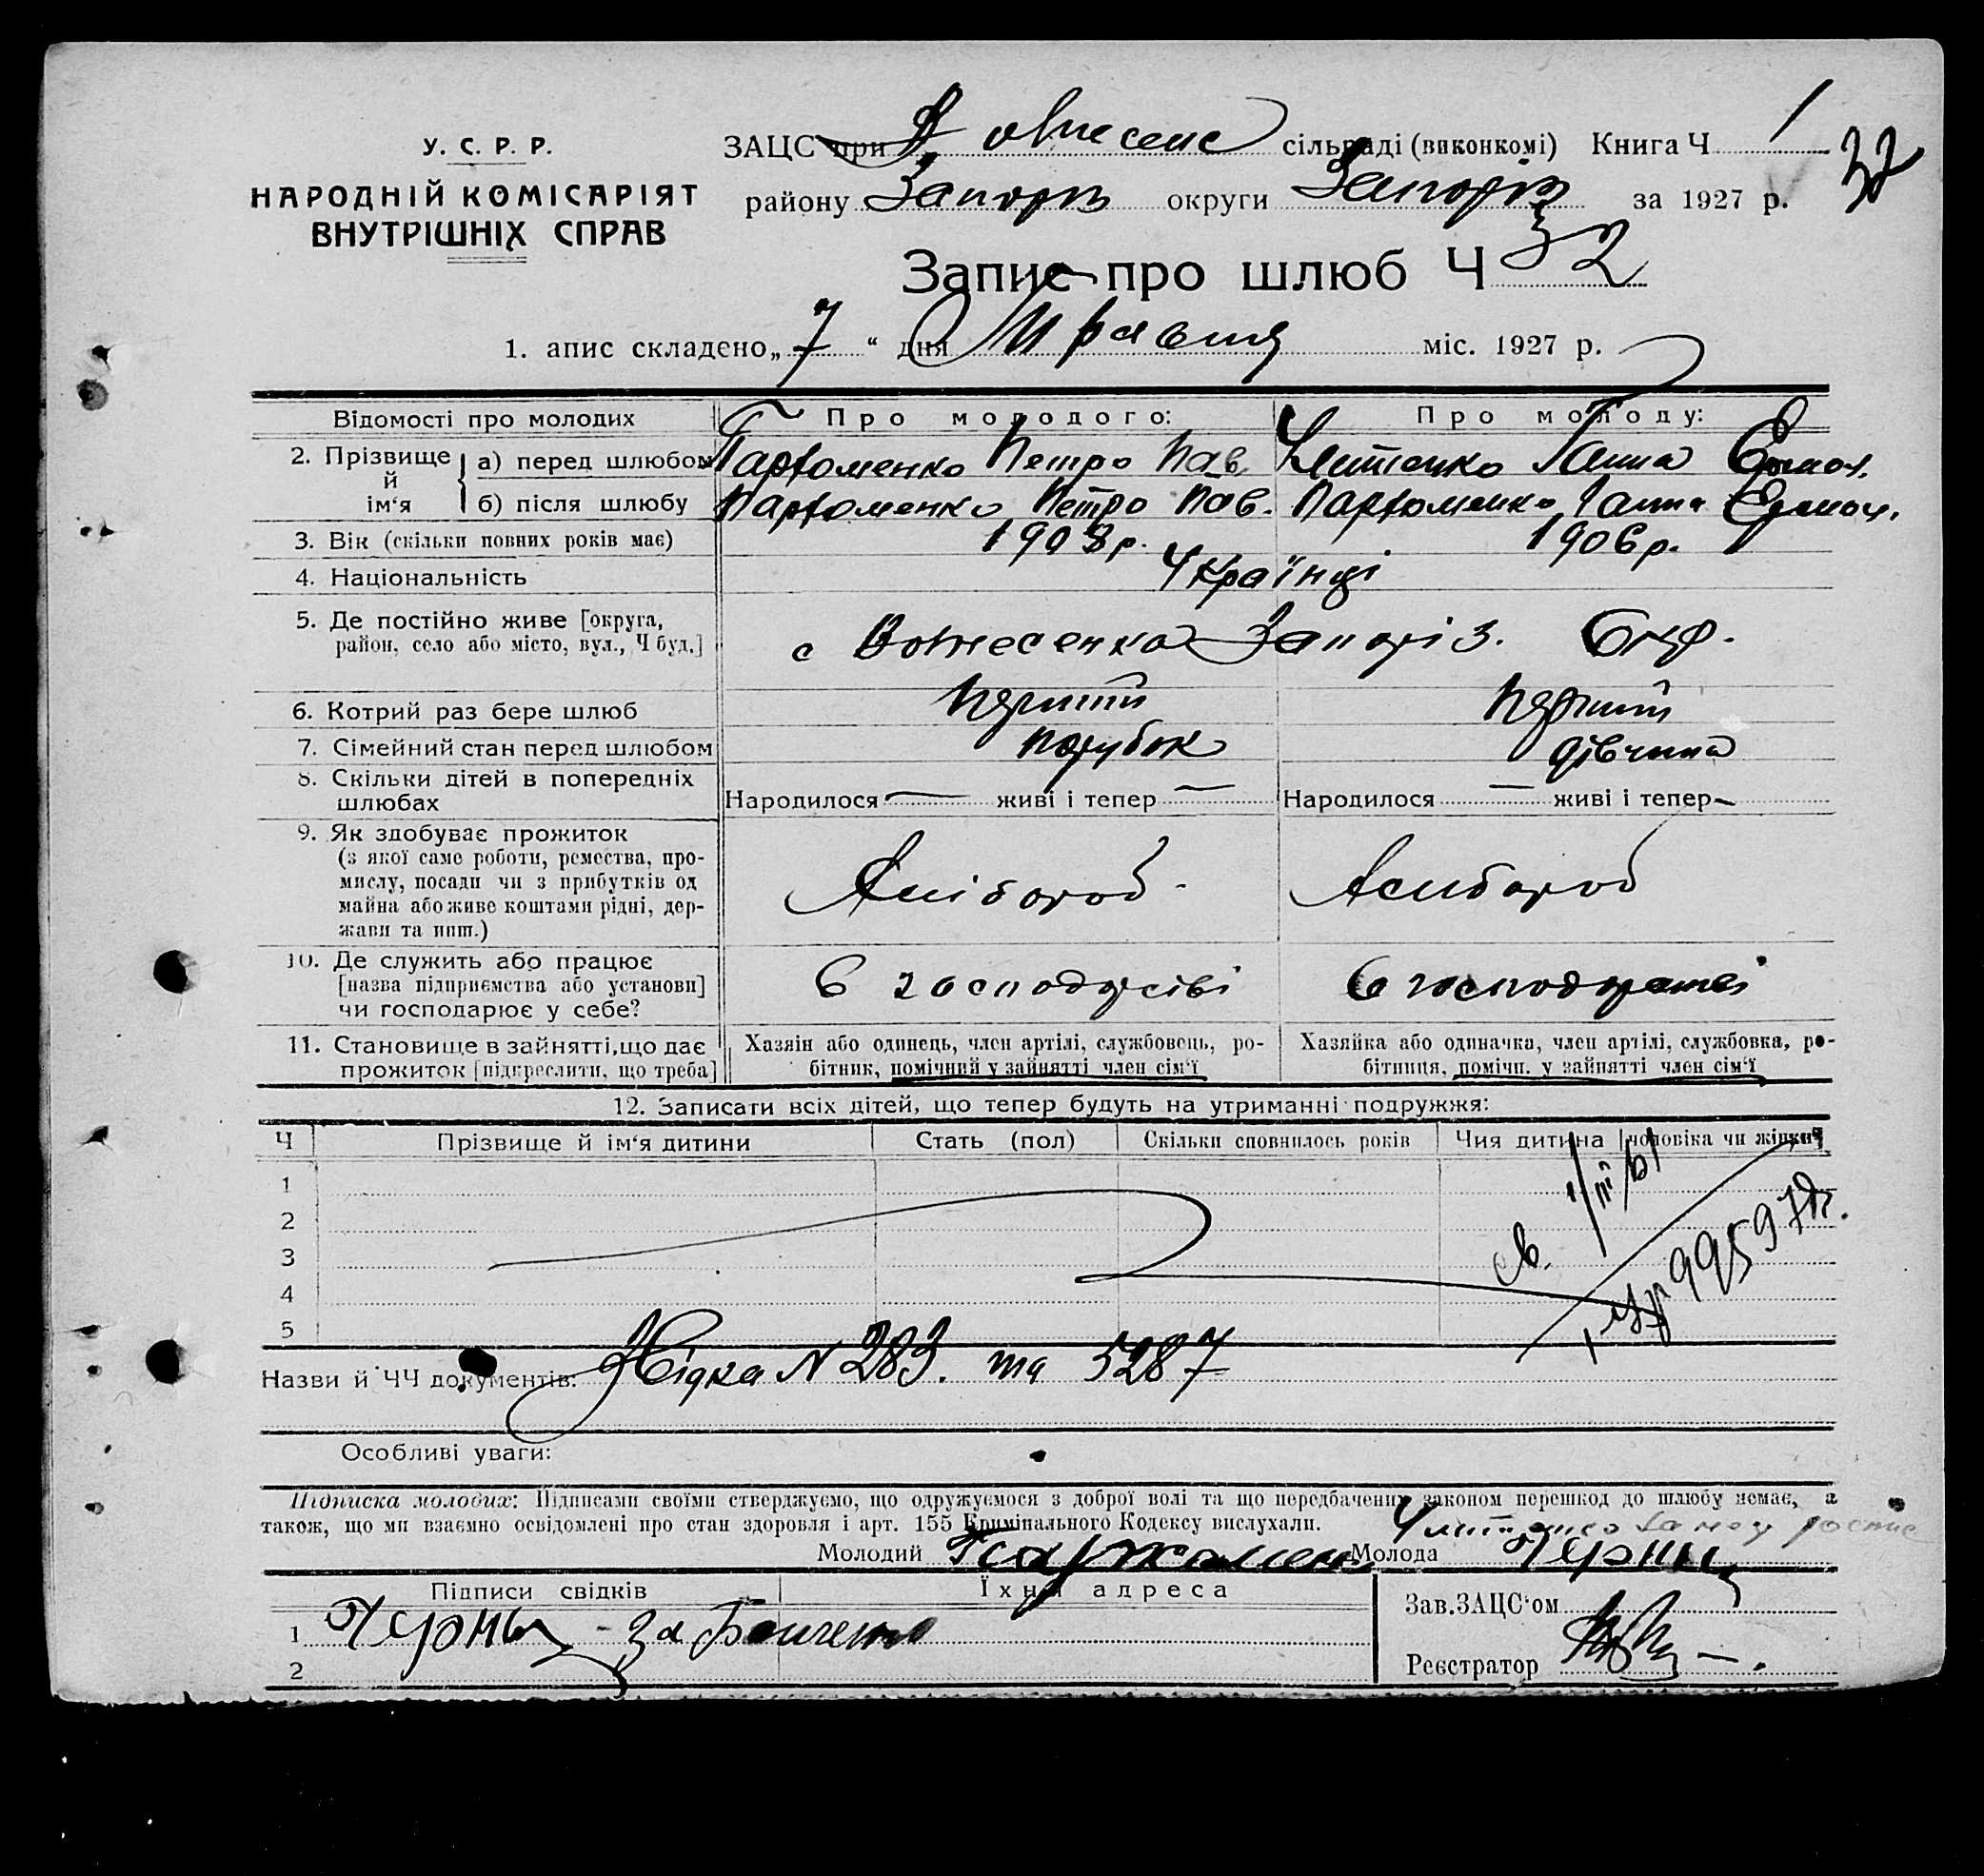 У. С. Р. Р.
НАРОДНІЙ КОМІСАРІЯТ
ВНУТРІШНІХ СПРАВ
ЗАЦС при сільраді (виконкомі) Книга Ч 1
32
району Запоріз округи Запоріз за 1927 р.
Запис про шлюб Ч 32
1. апис складено „7“ дня Травня міс. 1927 р.
Відомості про молодих Про молодого: Про молоду:
2. Прізвище й ім‘я
а) перед шлюбом Пархоменко Петро Пав. Ганна
б) після шлюбу Пархоменко Петро Пав. Пархоменко Ганна
3. Вік (скільки повних років має) 1908 р. 1906 р.
4. Національність Українці
5. Де постійно живе [округа,
район, село або місто, вул., Ч буд.] с Вознесенка Запоріз. Окр.
6. Котрий раз бере шлюб Перший Перший
7. Сімейний стан перед шлюбом парубок дівчина
8. Скільки дітей в попередніх
шлюбах Народилося — живі і тепер — Народилося — живі і тепер —
9. Як здобуває прожиток
(з якої саме роботи, ремества, про-
мислу, посади чи з прибутків од
майна або живе коштами рідні, дер-
жави та инш.)
Хлібороб Хлібороб
10. Де служить або працює
[назва підприємства або установи]
чи господарює у себе?
В господарстві В господарстві
11. Становище в зайнятті, що дає
прожиток [підкреслити, що треба]
Хазяїн або одинець, член артілі, службовець, ро-
бітник, помічний у зайнятті член сім‘ї
Хазяйка або одиначка, член артілі, службовка, ро-
бітниця, помічн. у зайнятті член сім‘ї
12. Записати всіх дітей, що тепер будуть на утриманні подружжя:
Ч Прізвище й ім‘я дитини Стать (пол) Скільки сповнилось років Чия дитина чоловіка чи жінки
1
2
3
4
5
Назви й ЧЧ документів: N 283. та 5287
Особливі уваги:
Підписка молодих: Підписами своїми стверджуємо, що одружуємося з доброї волі та що передбачених законом перешкод до шлюбу немає, а
також, що ми взаємно освідомлені про стан здоровля і арт. 155 Кримінального Кодексу вислухали.
Молодий Молода
Підписи свідків Їхня адреса
1
2
Зав. ЗАЦС‘ом
Реєстратор